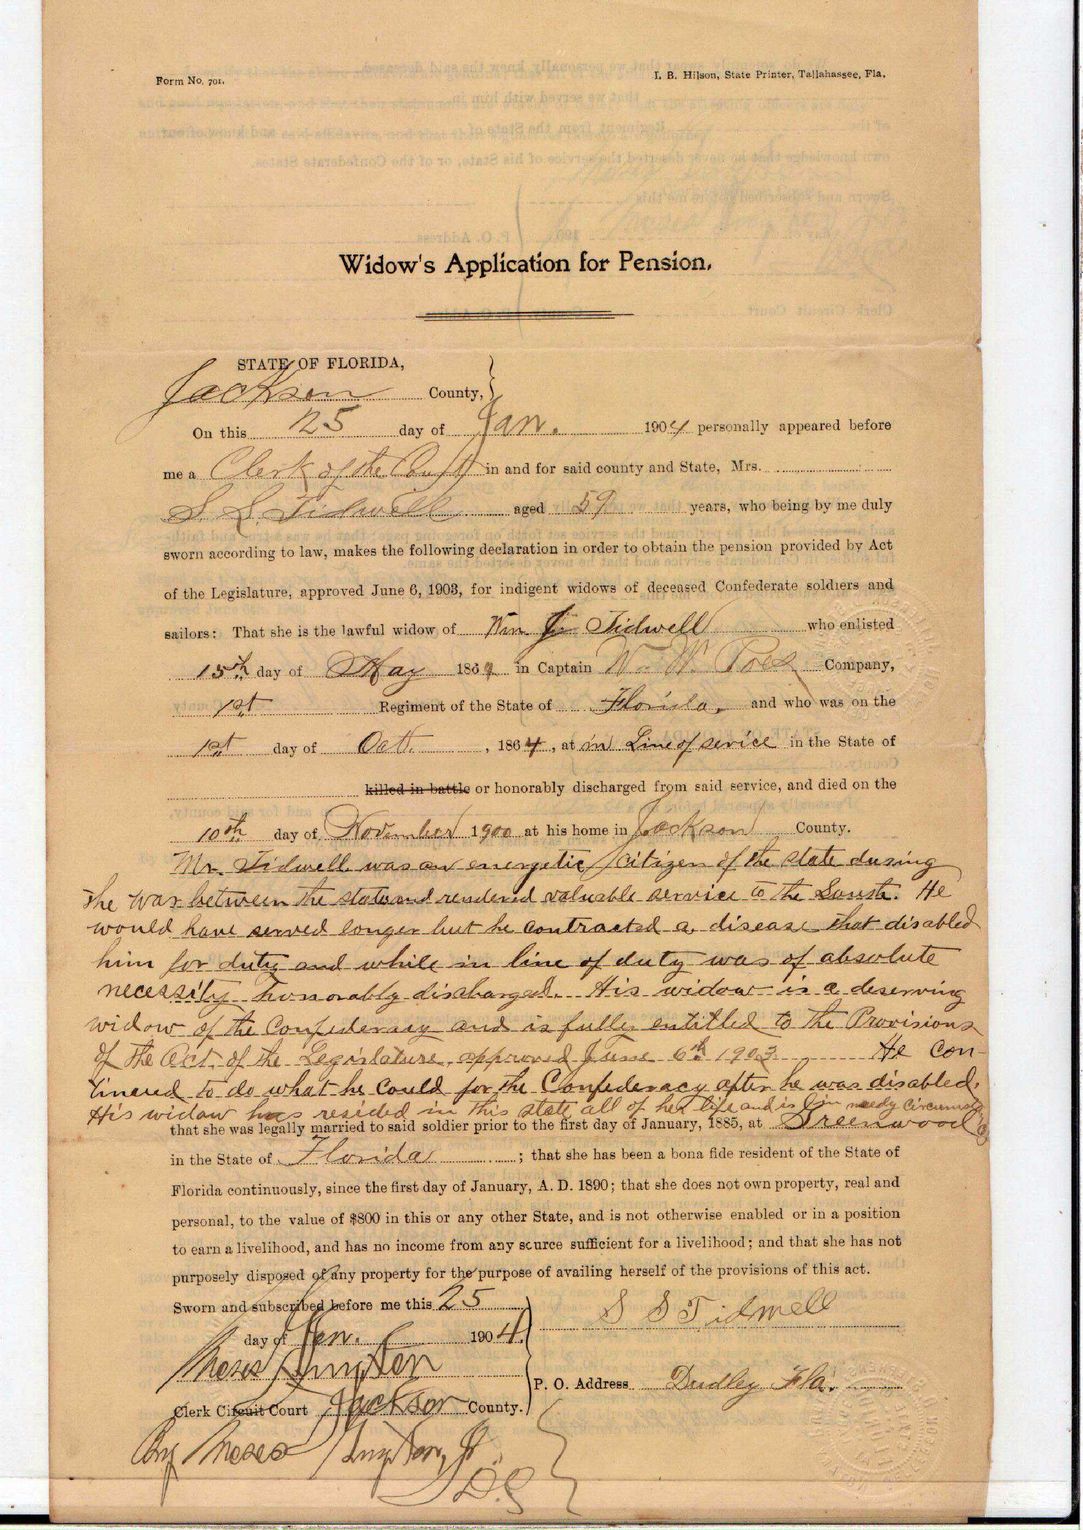 Form No. 701.
I. B. Hilson, State Printer, Tallahassee, Fla.
Widow's Application for Pension.
STATE OF FLORIDA,
Jackson County,
On this 25 day of Jan. 1904 personally appeared before
me a Clerk of the Court in and for said county and State, Mrs.
S. S. Tidwell aged 59 years, who being by me duly
sworn according to law, makes the following declaration in order to obtain the pension provided by Act
of the Legislature, approved June 6, 1903, for indigent widows of deceased Confederate soldiers and
sailors: That she is the lawful widow of Wm J Tidwell who enlisted
15th day of May 186 in Captain W. W. Company,
1st Regiment of the State of Florida, and who was on the
1st day of Oct. , 1864, at in Line of service in the State of
killed in battle or honorably discharged from said service, and died on the
10th day of November 1900 at his home in Jackson County.
Mr. Tidwell was an energetic citizen of the state during
the war between the states and rendered valuable service to the South. He
would have served longer but he contracted a disease that disabled
him for duty and while in line of duty was of absolute
necessity honorably discharged. His widow is a deserving
widow of the Confederacy and is fully entitled to the Provisions
of the Act of the Legislature approved June 6th 1903. He con-
tinued to do what he could for the Confederacy after he was disabled.
His widow has resided in this state all of her life and is in needy
that she was legally married to said soldier prior to the first day of January, 1885, at Greenwood
in the State of Florida ; that she has been a bona fide resident of the State of
Florida continuously, since the first day of January, A. D. 1890; that she does not own property, real and
personal, to the value of $800 in this or any other State, and is not otherwise enabled or in a position
to earn a livelihood, and has no income from any source sufficient for a livelihood; and that she has not
purposely disposed of any property for the purpose of availing herself of the provisions of this act.
Sworn and subscribed before me this 25
day of Jan. 1904.
S S Tidwell
Moses Guyton
P. O. Address Dudley Fla.
Clerk Circuit Court Jackson County.
By Moses Guyton, Jr.
D.C.